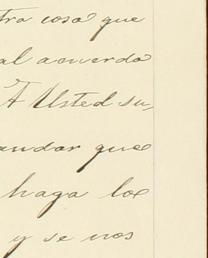 tra cosa que
al acuerdo
A Usted su,
andar que
haga los
y se nos